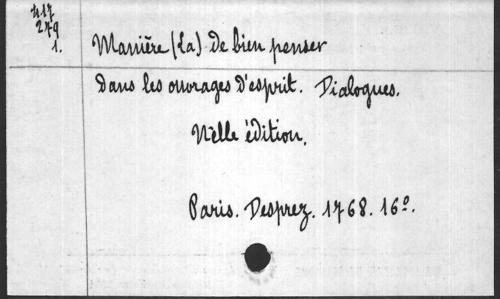 417
279
1.
Manière (La) de bien penser
dans les ouvrages d'esprit. Dialogues.
Nelle édition.
Paris. Desprez. 1768. 16º.